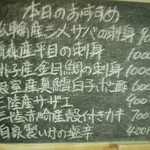 本日のおすすめ
産シメサバの刺身
産平目の刺身 1000
銚子産金目鯛の刺身 1000
根室産真鱈白子ポン酢 600
三陸産サザエ 900
三陸赤崎産殻付きカキ 700
自家製いかの塩辛 400